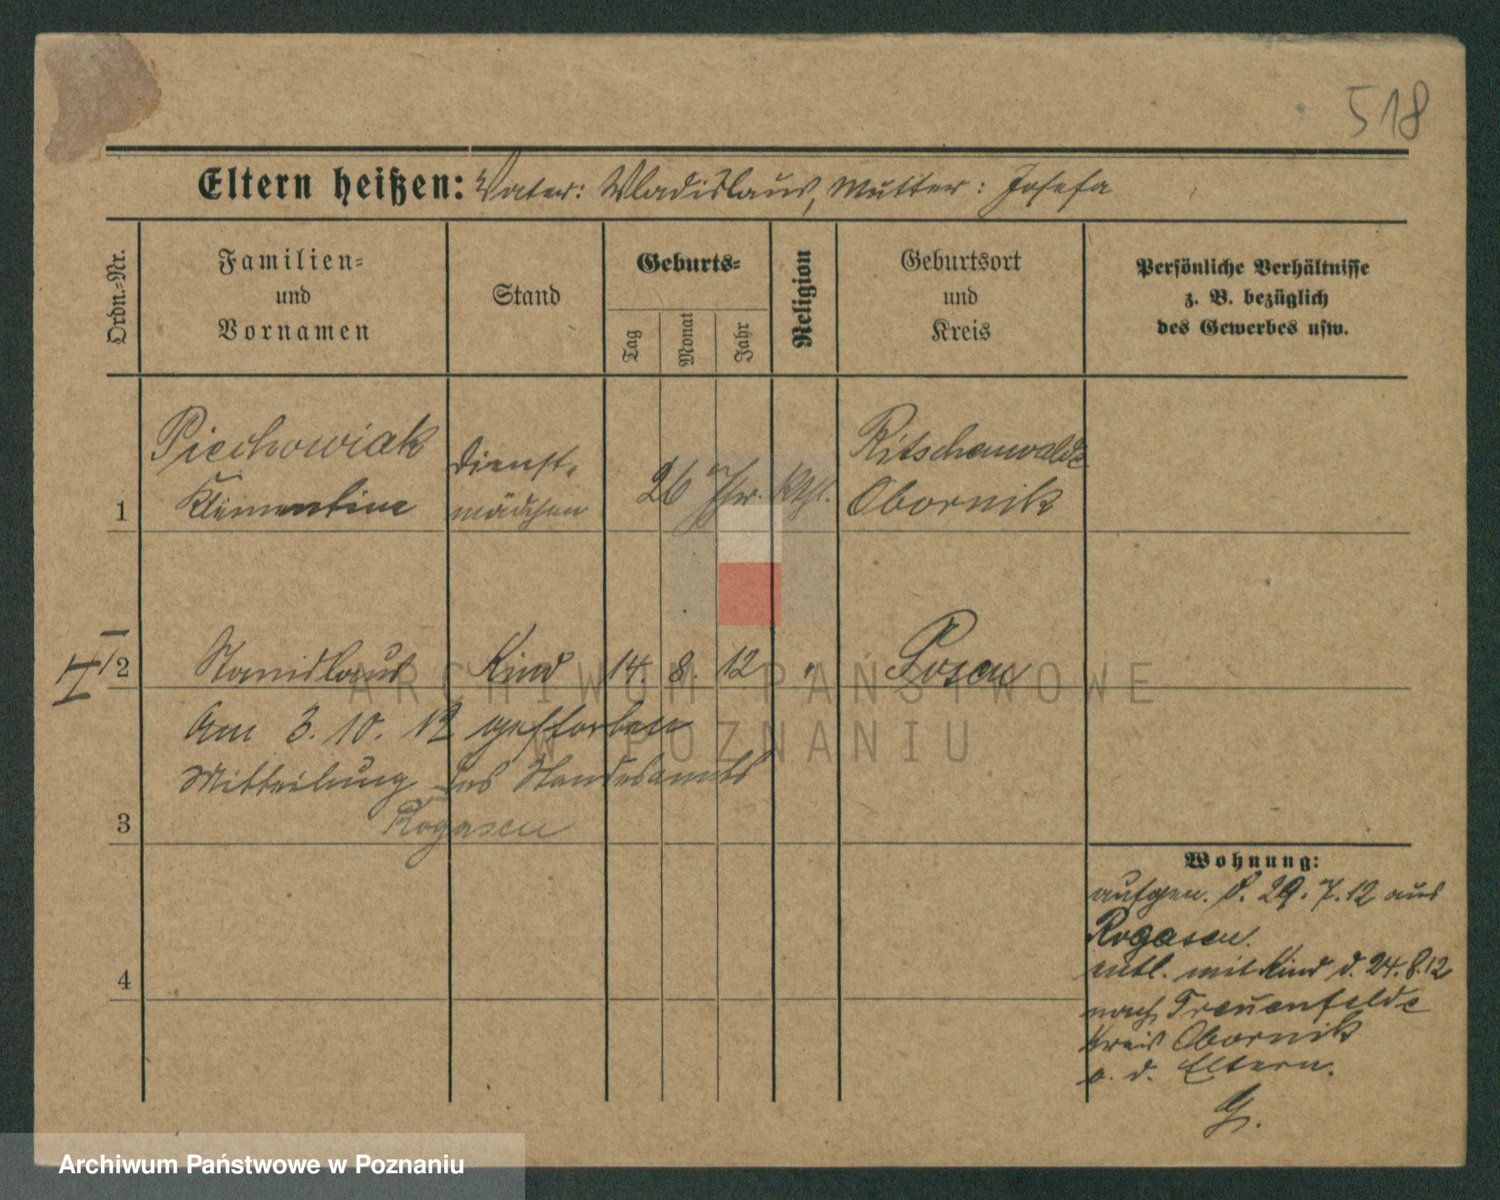 518
Eltern heißen: Vater: Wladislaus, Mutter: Josefa
Ordn.-Nr.
Familien-
und
Vornamen
Stand
Geburts-
Tag
Monat
Jahr
Religion
Geburtsort
und
Kreis
Persönliche Verhältnisse
z. B. bezüglich
des Gewerbes usw.
Piechowiak Dienst- Ritschenwalde
1 Klementine mädchen 26 Jhr. kth. Obornik
II/2 Stanislaus Kind 14. 8. 12 " Posen
Am 3. 10. 12 gestorben
Mitteilung des Standesamts
3 Rogasen
4
Wohnung:
aufgen. d. 29. 7. 12 aus
Rogasen.
entl. mit Kind d. 24. 8. 12
nach Treuenfelde
Kreis Obornik
d. Eltern.
G.
ARCHIWUM PAŃSTWOWE
W POZNANIU
Archiwum Państwowe w Poznaniu